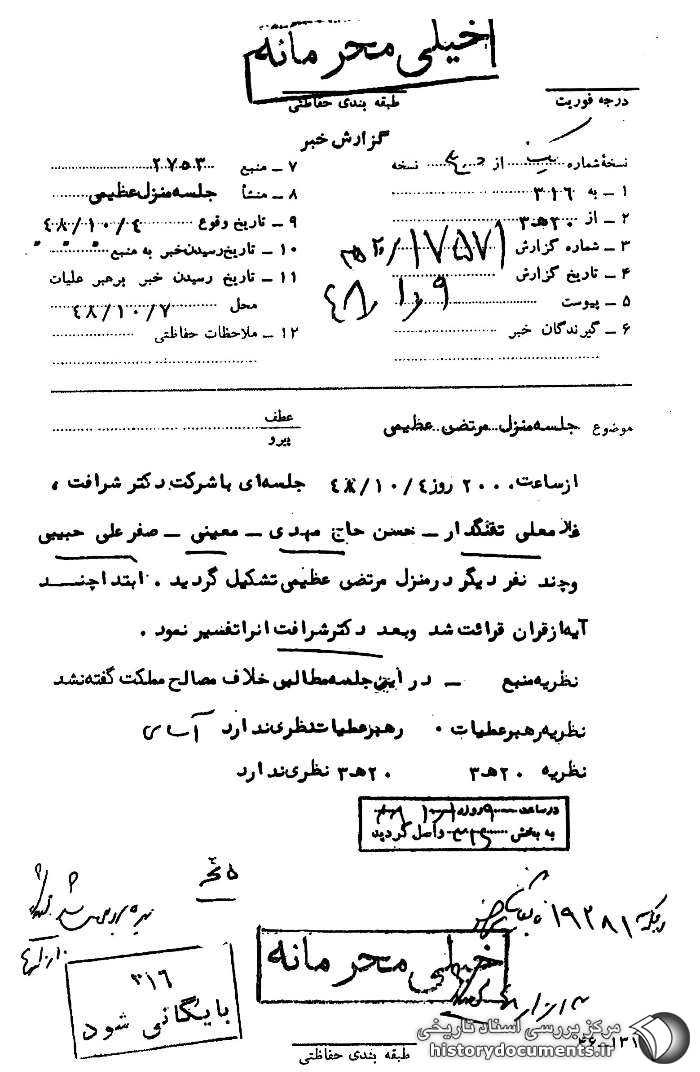 خیلی محرمانه
طبقه بندی حفاظتی
درجه فوریت
گزارش خبر
نسخهٔ شماره از نسخه
۱ ــ به ۳۱۶
۲ ــ از ۲۰هـ۳
۳ ــ شماره گزارش ۱۷۵۷۱/
۴ ــ تاریخ گزارش
۵ ــ پیوست
۶ ــ گیرندگان خبر
۷ ــ منبع ۲۷۵۳
۸ ــ منشأ جلسه منزل عظیمی
۹ ــ تاریخ وقوع ۴۸/۱۰/۴
۱۰ ــ تاریخ رسیدن خبر به منبع
۱۱ ــ تاریخ رسیدن خبر برهبر عملیات
محل ۴۸/۱۰/۷
۱۲ ــ ملاحظات حفاظتی
موضوع جلسه منزل مرتضی عظیمی
عطف
پیرو
از ساعت ۲۰۰۰ روز ۴۸/۱۰/۴ جلسه‌ای با شرکت دکتر شرافت ،
تفنگدار ــ حسن حاج مهدی ــ معینی ــ صفرعلی حبیبی
وچند نفر دیگر در منزل مرتضی عظیمی تشکیل گردید . ابتدا چنــد
آیه از قران قرائت شد وبعد دکتر شرافت انرا تفسیر نمود .
نظریه منبع ــ در این جلسه مطالبی خلاف مصالح مملکت گفته نشد
نظریه رهبر عملیات . رهبر عملیات نظری ندارد
نظریه ۲۰هـ۳ ۲۰هـ۳ نظری ندارد
در ساعت روز
به بخش واصل گردید
خیلی محرمانه
۳۱۶
بایگانی شود
طبقه بندی حفاظتی
مرکز بررسی اسناد تاریخی
historydocuments.ir